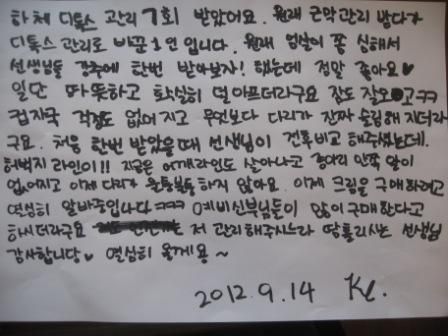 하체 디톡스 관리 7회 받았어요. 원래 근막관리 받다가
디톡스 관리로 바꾼 1인 입니다. 원래 엄살이 쫌 심해서
선생님들 강추에 한번 받아보자! 했는데 정말 좋아요♡
일단 따뜻하고 확실히 덜아프더라구요 잠도 잘오고ㅋㅋ
컵자국 걱정도 없어지고 무엇보다 다리가 진짜 슬림해지더라
구요. 처음 한번 받았을때 선생님이 전후비교 해주셨는데.
허벅지 라인이!! 지금은 어깨라인도 살아나고 종아리 안쪽 알이
없어지고 이제 다리가 울퉁불퉁하지 않아요. 이제 크림을 구매하려고
열심히 알바중입니다ㅋㅋㅋ 예비신부님들이 많이 구매한다고
하시더라구요 저 관리해주시느라 땀흘리시는 선생님
감사합니다♡ 열심히 올게용~
2012. 9. 14